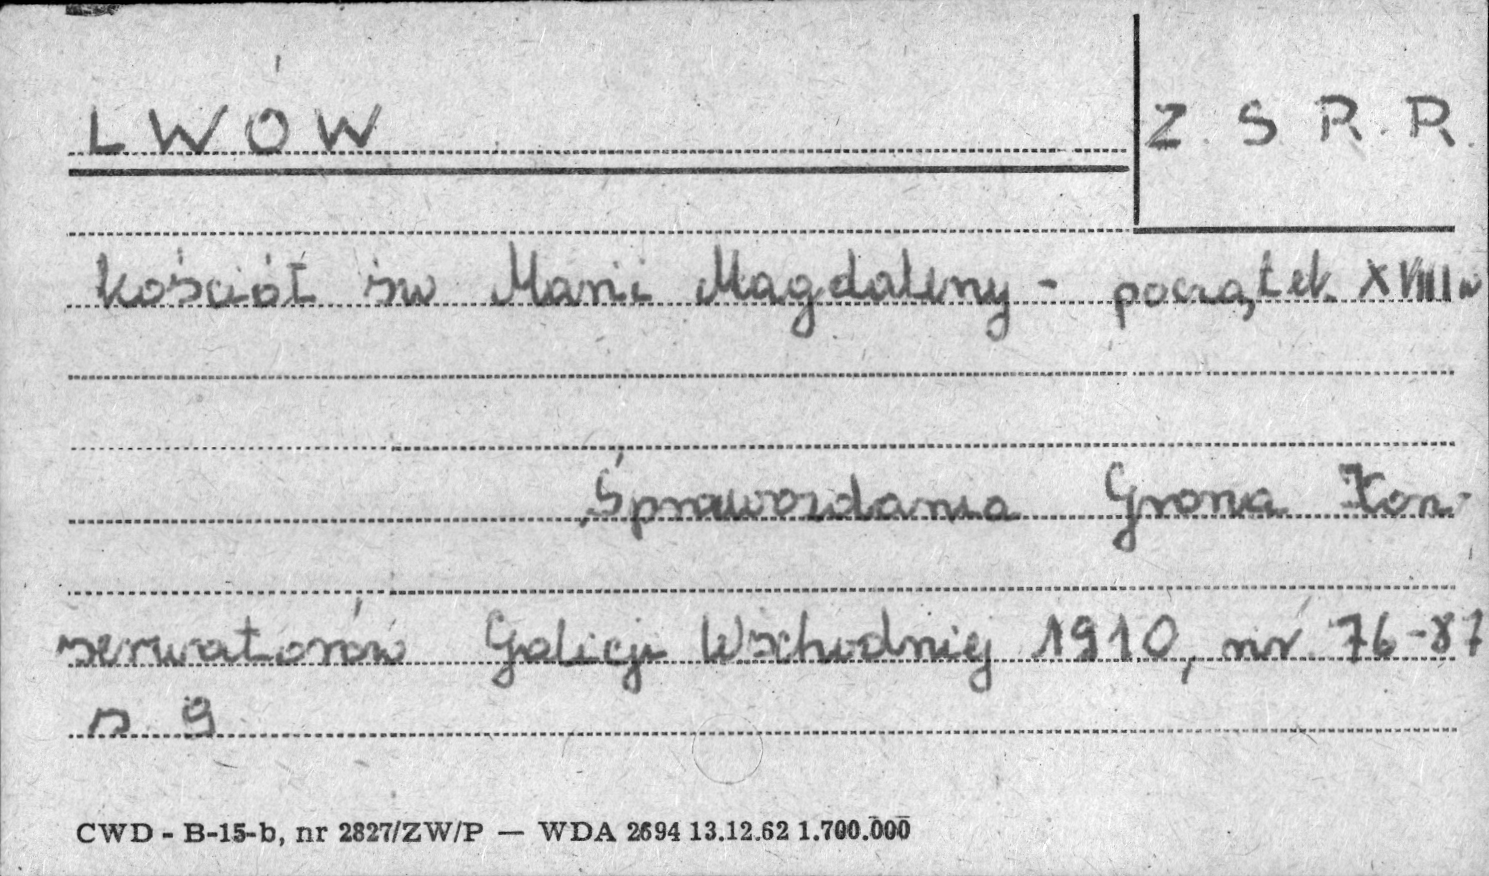 LWÓW
Z.S.R.R.
kościół św Marii Magdaleny - początek XVIII w
Sprawozdania Grona Kon-
serwatorów Galicji Wschodniej 1910, nr 76-87
s. 9
CWD - B-15-b, nr 2827/ZW/P — WDA 2694 13.12.62 1.700.000